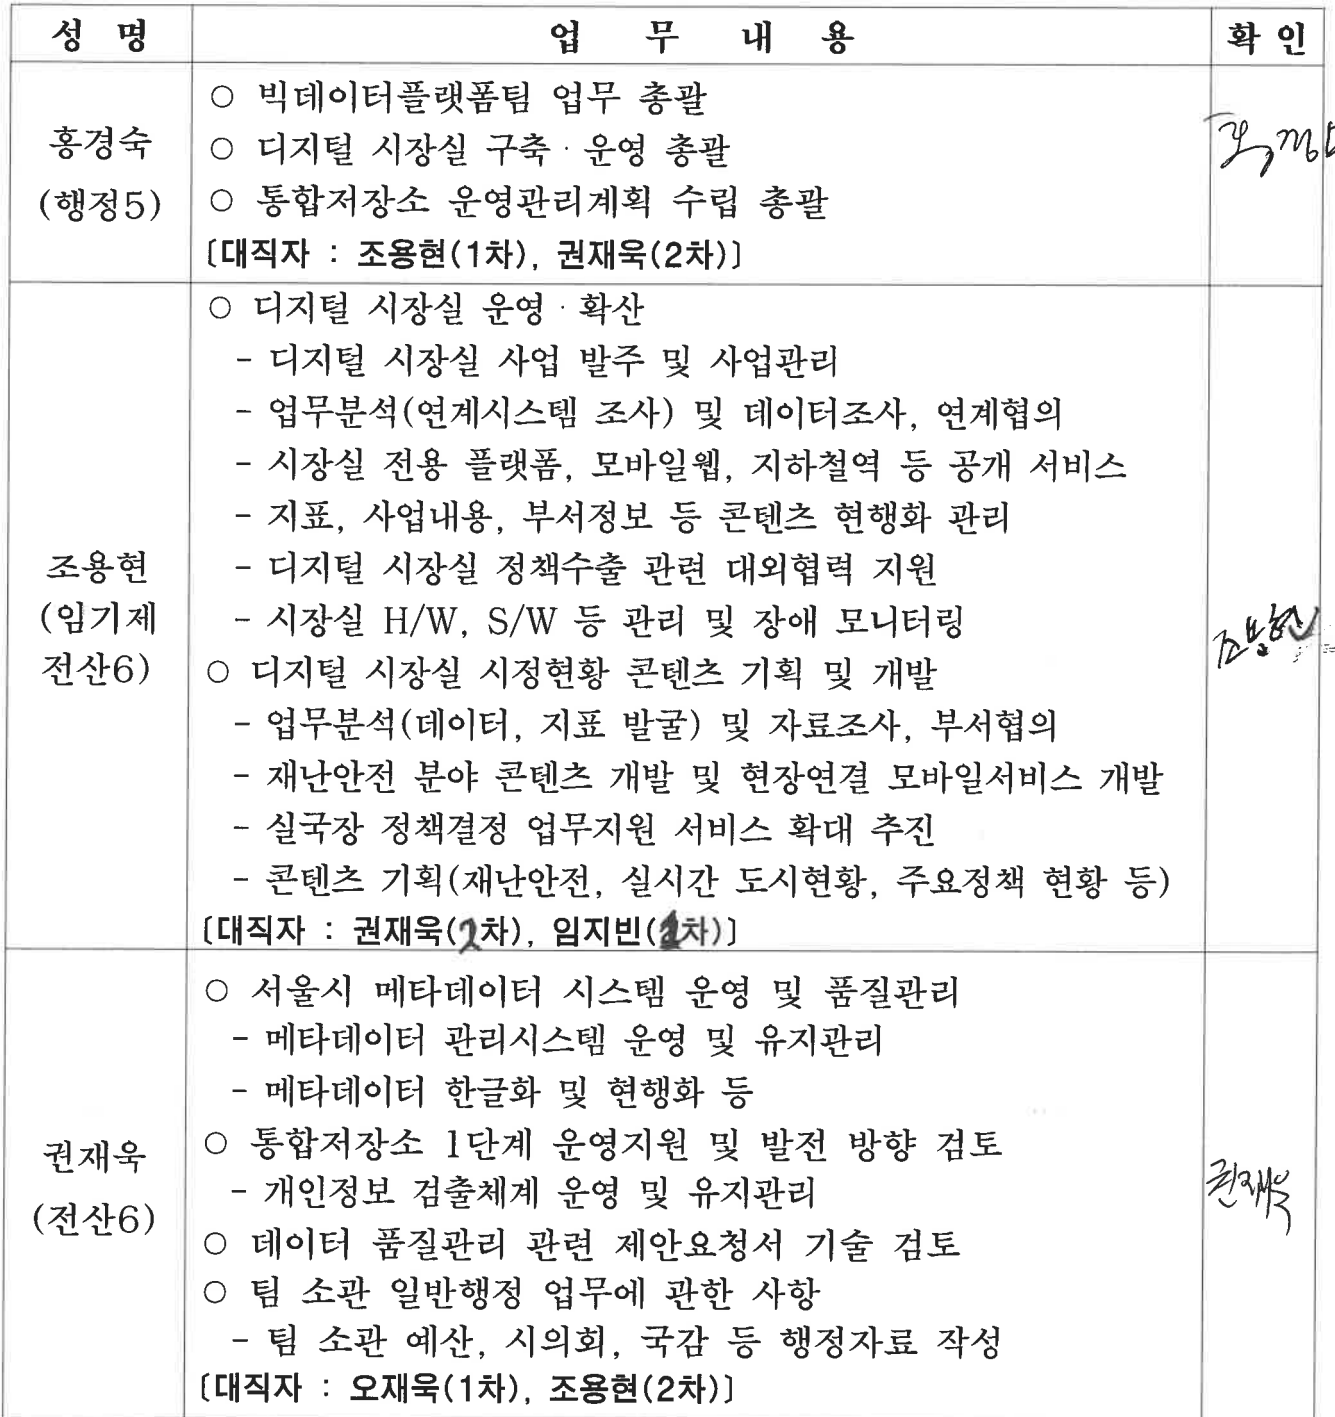 성 명 업 무 내 용 확 인
홍경숙
(행정5)
○ 빅데이터플랫폼팀 업무 총괄
○ 디지털 시장실 구축·운영 총괄
○ 통합저장소 운영관리계획 수립 총괄
〔대직자 : 조용현(1차), 권재욱(2차)〕
조용현
(임기제
전산6)
○ 디지털 시장실 운영·확산
- 디지털 시장실 사업 발주 및 사업관리
- 업무분석(연계시스템 조사) 및 데이터조사, 연계협의
- 시장실 전용 플랫폼, 모바일웹, 지하철역 등 공개 서비스
- 지표, 사업내용, 부서정보 등 콘텐츠 현행화 관리
- 디지털 시장실 정책수출 관련 대외협력 지원
- 시장실 H/W, S/W 등 관리 및 장애 모니터링
○ 디지털 시장실 시정현황 콘텐츠 기획 및 개발
- 업무분석(데이터, 지표 발굴) 및 자료조사, 부서협의
- 재난안전 분야 콘텐츠 개발 및 현장연결 모바일서비스 개발
- 실국장 정책결정 업무지원 서비스 확대 추진
- 콘텐츠 기획(재난안전, 실시간 도시현황, 주요정책 현황 등)
〔대직자 : 권재욱(2차), 임지빈(1차)〕
조용현
권재욱
(전산6)
○ 서울시 메타데이터 시스템 운영 및 품질관리
- 메타데이터 관리시스템 운영 및 유지관리
- 메타데이터 한글화 및 현행화 등
○ 통합저장소 1단계 운영지원 및 발전 방향 검토
- 개인정보 검출체계 운영 및 유지관리
○ 데이터 품질관리 관련 제안요청서 기술 검토
○ 팀 소관 일반행정 업무에 관한 사항
- 팀 소관 예산, 시의회, 국감 등 행정자료 작성
〔대직자 : 오재욱(1차), 조용현(2차)〕
권재욱